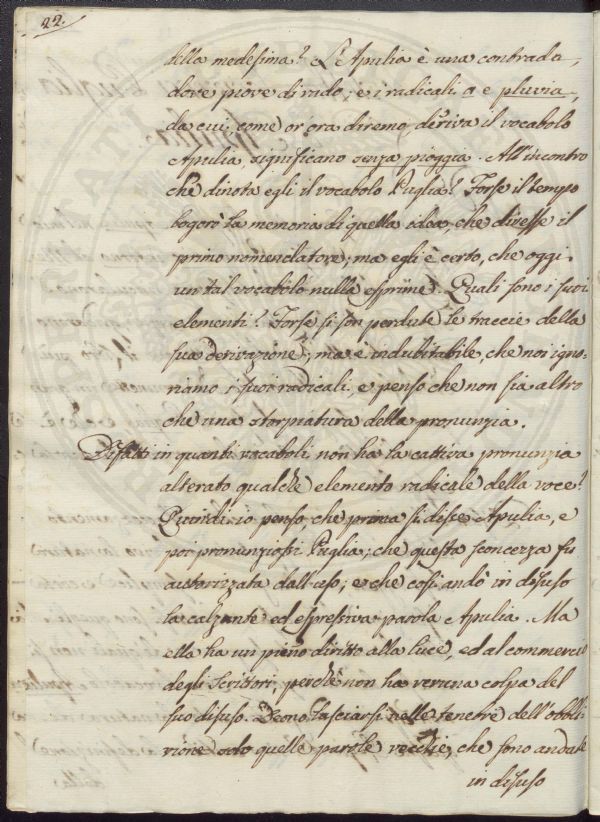 22.
della medesima? L'Apulia è una contrada,
dove piove di rado; e i radicali a e pluvia,
da cui, come or'ora diremo, deriva il vocabolo
Apulia, significano senza pioggia. All'incontro
che dinota egli il vocabolo Puglia? Forse il tempo
logorò la memoria di quella idea, che diresse il
primo nomenclatore; ma egli è certo, che oggi
un tal vocabolo nulla esprime. Quali sono i suoi
elementi? Forse si son perdute le traccie della
sua derivazione; ma è indubitabile, che noi igno-
riamo i suoi radicali, e penso che non sia altro
che una storpiatura della pronunzia.
Difatti in quanti vocaboli non ha la cattiva pronunzia
alterato qualche elemento radicale della voce?
Quindi io penso, che prima si disse Apulia, e
poi pronunziossi Puglia; che questa sconcezza fu
autorizzata dall'uso; e che così andò in disuso
la calzante ed espressiva parola Apulia. Ma
ella ha un pieno diritto alla luce, ed al commercio
degli Scrittori, perchè non ha veruna colpa del
suo disuso. Deono lasciarsi nelle tenebre dell'obbli-
vione solo quelle parole vecchie, che sono andate
in disuso